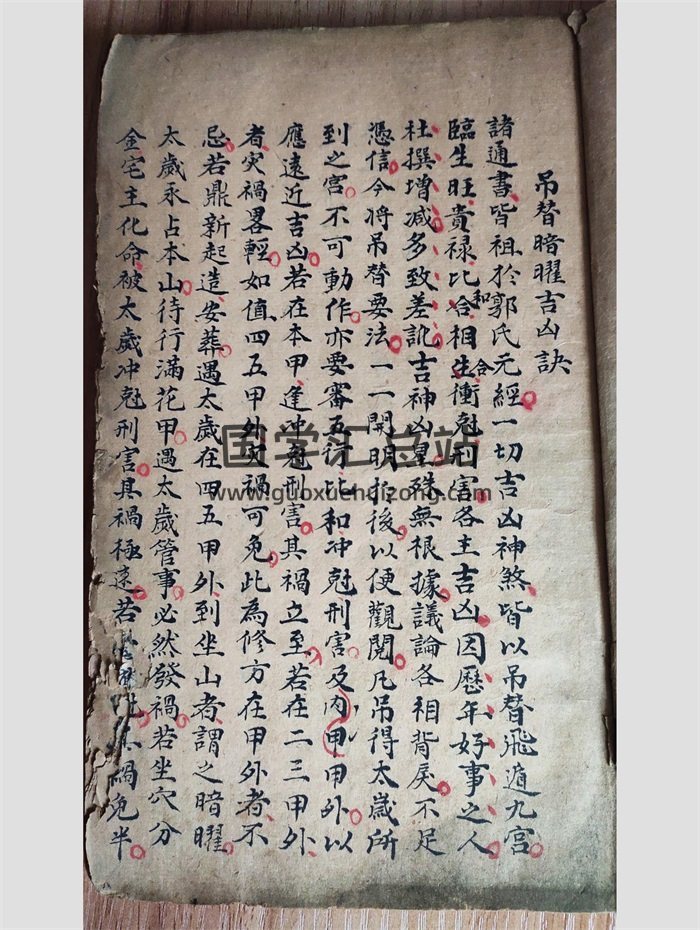 吊替暗曜吉凶訣
諸通書皆祖於郭氏元經一切吉凶神煞皆以吊替飛遁九宮
臨生旺貴祿比和合相生合衝尅刑害各主吉凶因歷年好事之人
杜撰增減多致差訛吉神凶星殊無根據議論各相背戾不足
憑信今將吊替要法一一開明於後以便觀閱凡吊得太歲所
到之宮不可動作亦要審五行比和冲尅刑害及內甲甲外以
應遠近吉凶若在本甲逢冲尅刑害其禍立至若在二三甲外
者灾禍畧輕如值四五甲外灾禍可免此為修方在甲外者不
忌若鼎新起造安葬遇太歲在四五甲外到坐山者謂之暗曜
太歲永占本山待行滿花甲遇太歲管事必然發禍若坐穴分
金宅主化命被太歲冲尅刑害其禍極速若禍免半
国学汇总站
www.guoxuehuizong.com